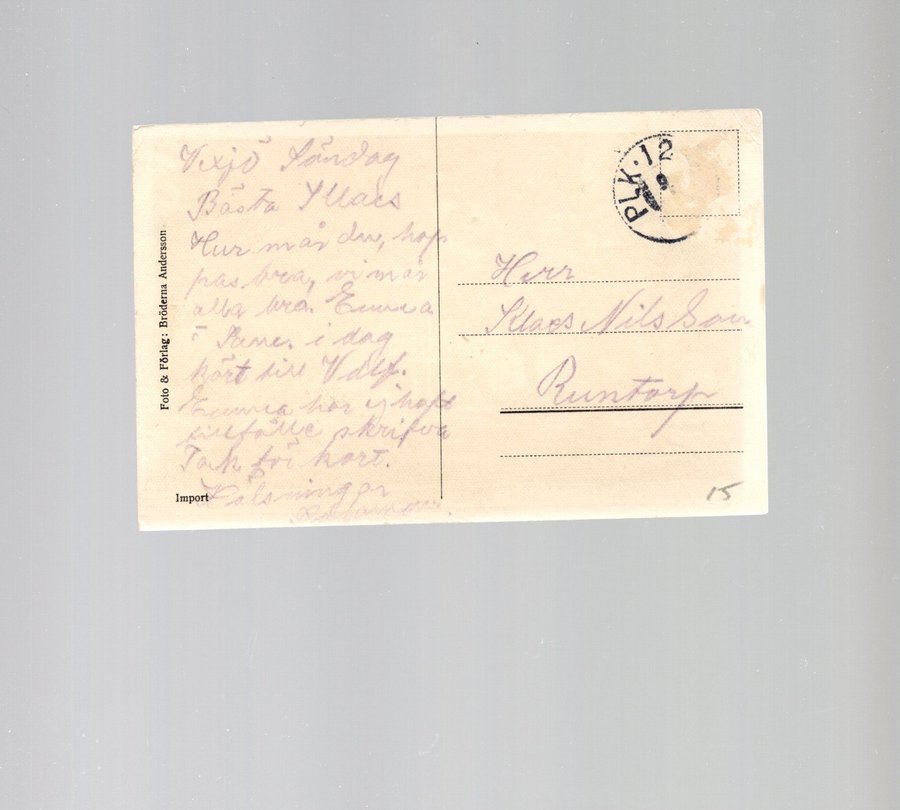 Vexjö Söndag
Bästa Klaes
Hur mår du, hop
pas bra, vi mår
alla bra. Emma
i dag
kört till
Emma har ej haft
tillfälle skrifva
Tack för kort.
Hälsningar
Foto & Förlag: Bröderna Andersson
Import
PLK·12
Herr
Klaes Nilsson
Runtorp
15